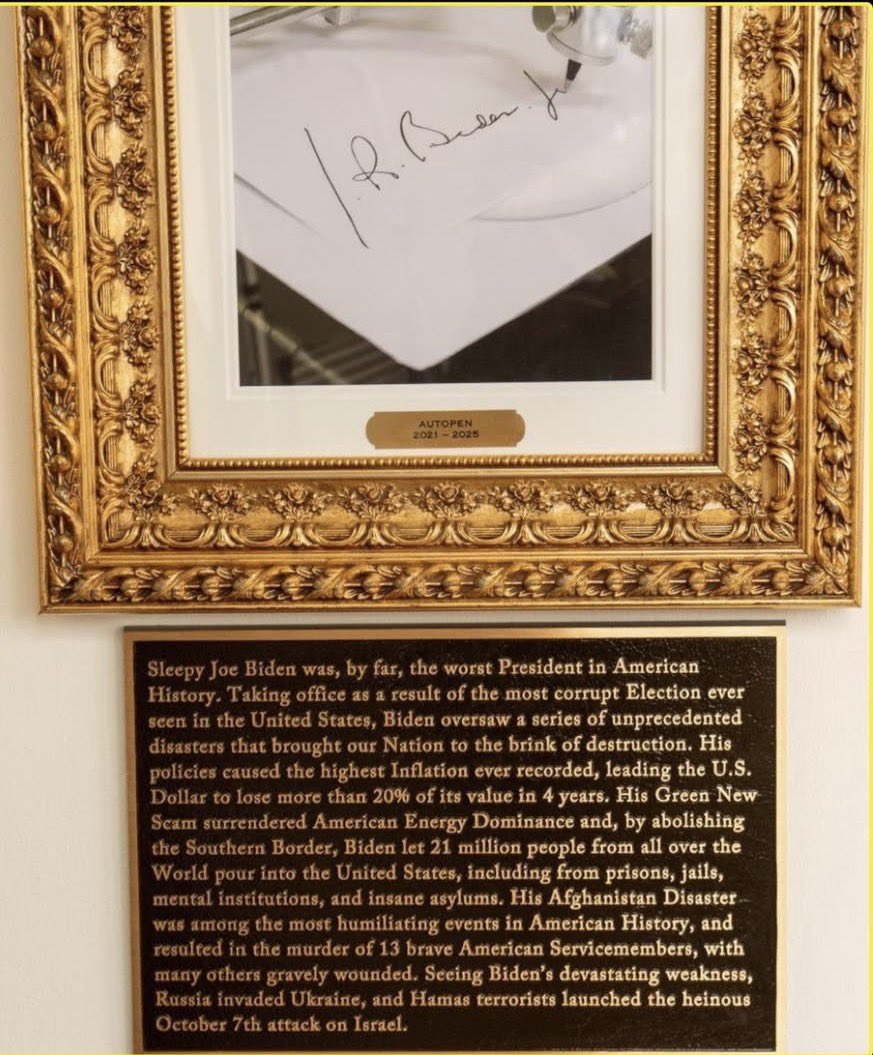 J. R. Biden Jr
AUTOPEN
2021 – 2025
Sleepy Joe Biden was, by far, the worst President in American
History. Taking office as a result of the most corrupt Election ever
seen in the United States, Biden oversaw a series of unprecedented
disasters that brought our Nation to the brink of destruction. His
policies caused the highest Inflation ever recorded, leading the U.S.
Dollar to lose more than 20% of its value in 4 years. His Green New
Scam surrendered American Energy Dominance and, by abolishing
the Southern Border, Biden let 21 million people from all over the
World pour into the United States, including from prisons, jails,
mental institutions, and insane asylums. His Afghanistan Disaster
was among the most humiliating events in American History, and
resulted in the murder of 13 brave American Servicemembers, with
many others gravely wounded. Seeing Biden's devastating weakness,
Russia invaded Ukraine, and Hamas terrorists launched the heinous
October 7th attack on Israel.